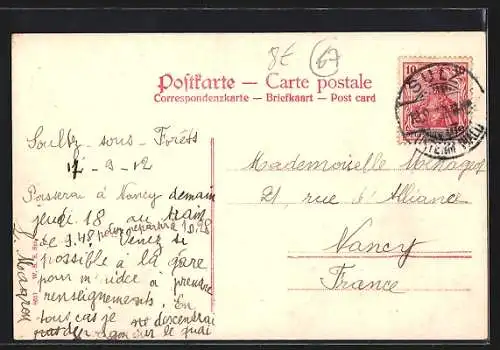 8f
67
Postkarte — Carte postale
Correspondenzkarte — Briefkarte — Post card
10 10
SULZ
Soultz-sous-Forêts
17-9-12
Passerai à Nancy demain
jeudi 18 au train
de 9.48 pour repartir à 10.28
Venez si
possible à la gare
pour m'aider à prendre
renseignements. En
tous cas je ne descendrai
sur le quai
Mademoiselle
21, rue d'Alliance
Nancy
France